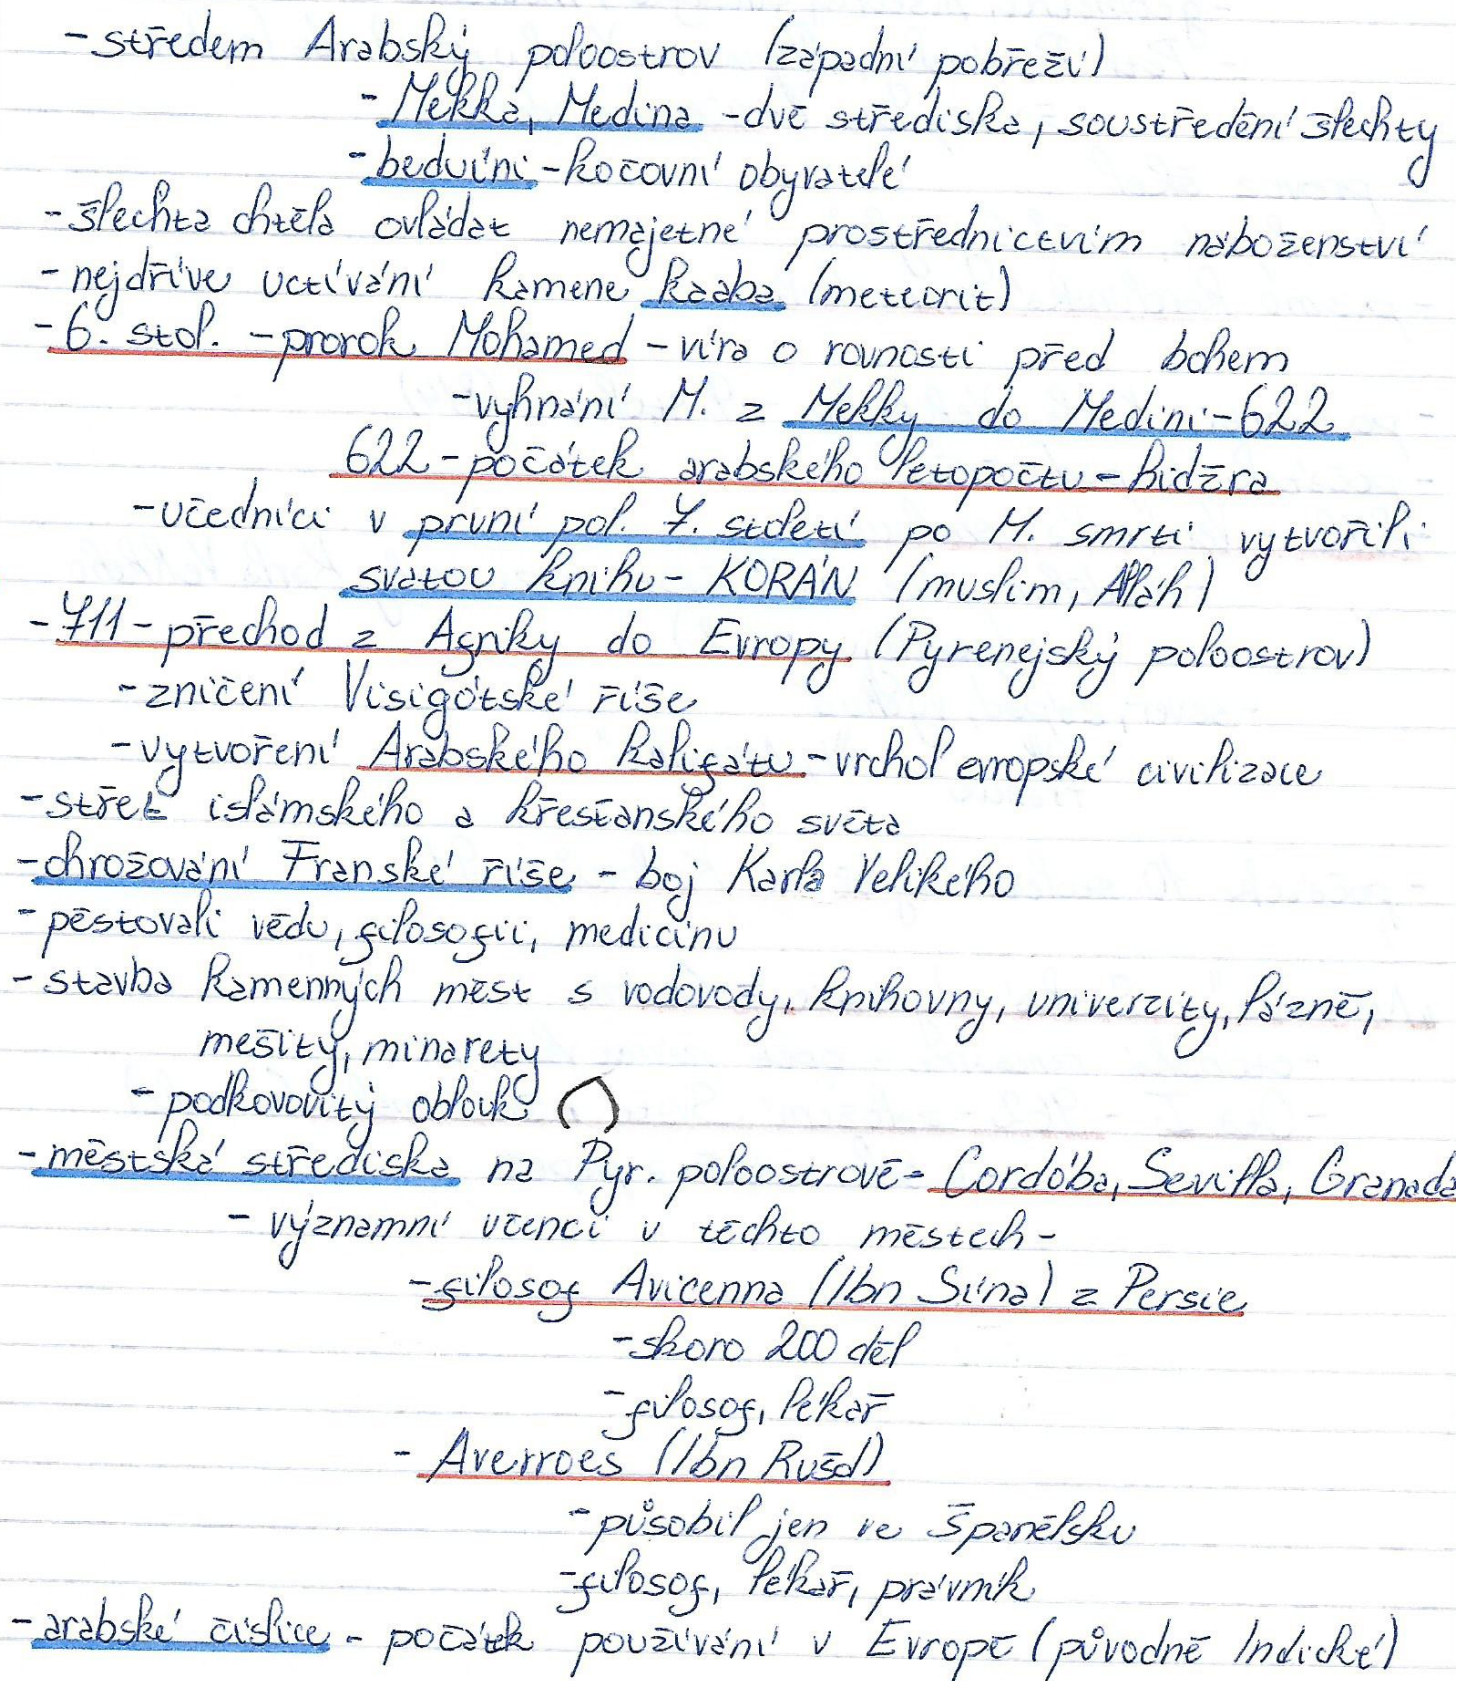 - středem Arabský poloostrov (západní pobřeží)
- Mekka, Medina - dvě střediska, soustředění šlechty
- beduíni - kočovní obyvatelé
- šlechta chtěla ovládat nemajetné prostřednictvím náboženství
- nejdříve uctívání kamene kaaba (meteorit)
- 6. stol. - prorok Mohamed - víra o rovnosti před bohem
- vyhnání M. z Mekky do Medíni - 622
622 - počátek arabského letopočtu - hidžra
- učedníci v první pol. 7. století po M. smrti vytvořili
svatou knihu - KORÁN (muslim, Aláh)
- 711 - přechod z Afriky do Evropy (Pyrenejský poloostrov)
- zničení Visigótské říše
- vytvoření Arabského kalifátu - vrchol evropské civilizace
- střet islámského a křesťanského světa
- ohrožování Franské říše - boj Karla Velikého
- pěstovali vědu, filosofii, medicínu
- stavba kamenných měst s vodovody, knihovny, univerzity, lázně,
mešity, minarety
- podkovovitý oblouk
- městská střediska na Pyr. poloostrově - Cordóba, Sevilla, Granada
- významní učenci v těchto městech -
- filosof Avicenna (Ibn Sína) z Persie
- skoro 200 děl
- filosof, lékař
- Averroes (Ibn Rušd)
- působil jen ve Španělsku
- filosof, lékař, právník
- arabské číslice - počátek používání v Evropě (původně Indické)